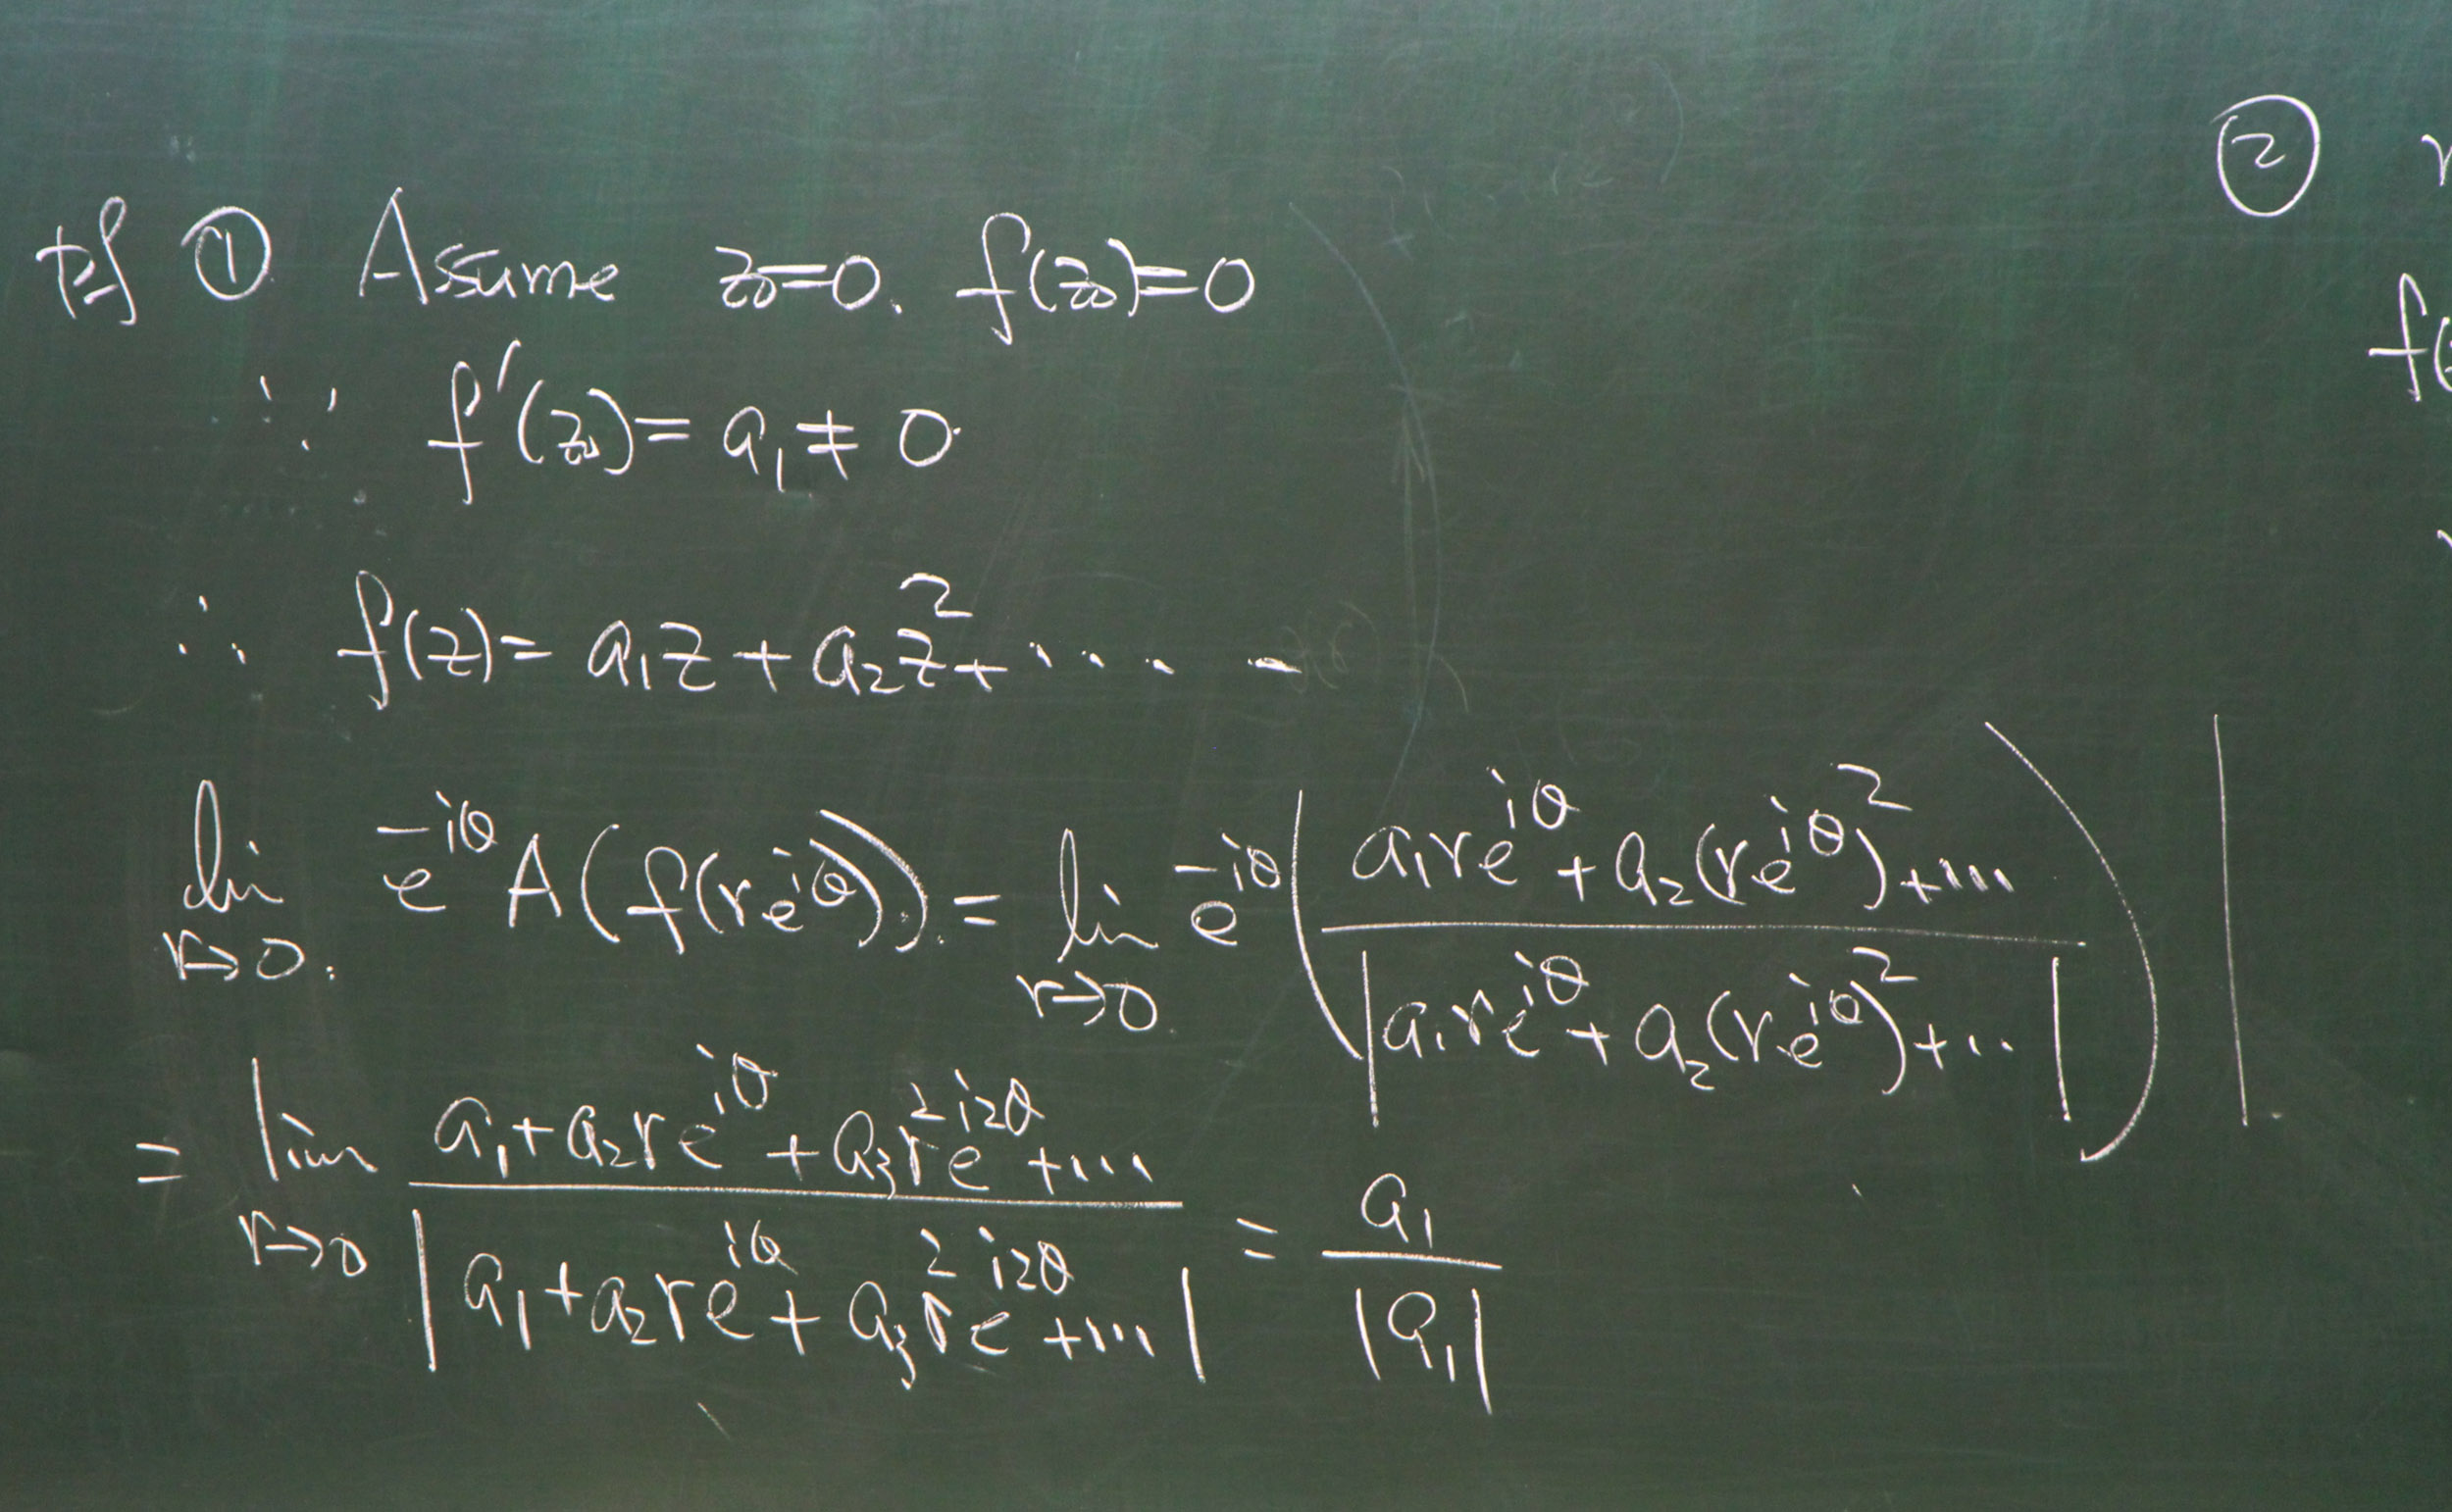 pf ① Assume z₀=0. f(z₀)=0
∵ f'(z₀)= a₁ ≠ 0
∴ f(z)= a₁z + a₂z² + ⋯
lim_{r→0} e^{-iθ} A(f(re^{iθ})) = lim_{r→0} e^{-iθ} ( (a₁re^{iθ} + a₂(re^{iθ})² + ⋯) / |a₁re^{iθ} + a₂(re^{iθ})² + ⋯| )
= lim_{r→0} (a₁ + a₂re^{iθ} + a₃r²e^{i2θ} + ⋯) / |a₁ + a₂re^{iθ} + a₃r²e^{i2θ} + ⋯| = a₁ / |a₁|
②